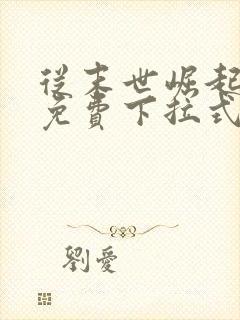 從末世崛起
免費下拉式
劉愛